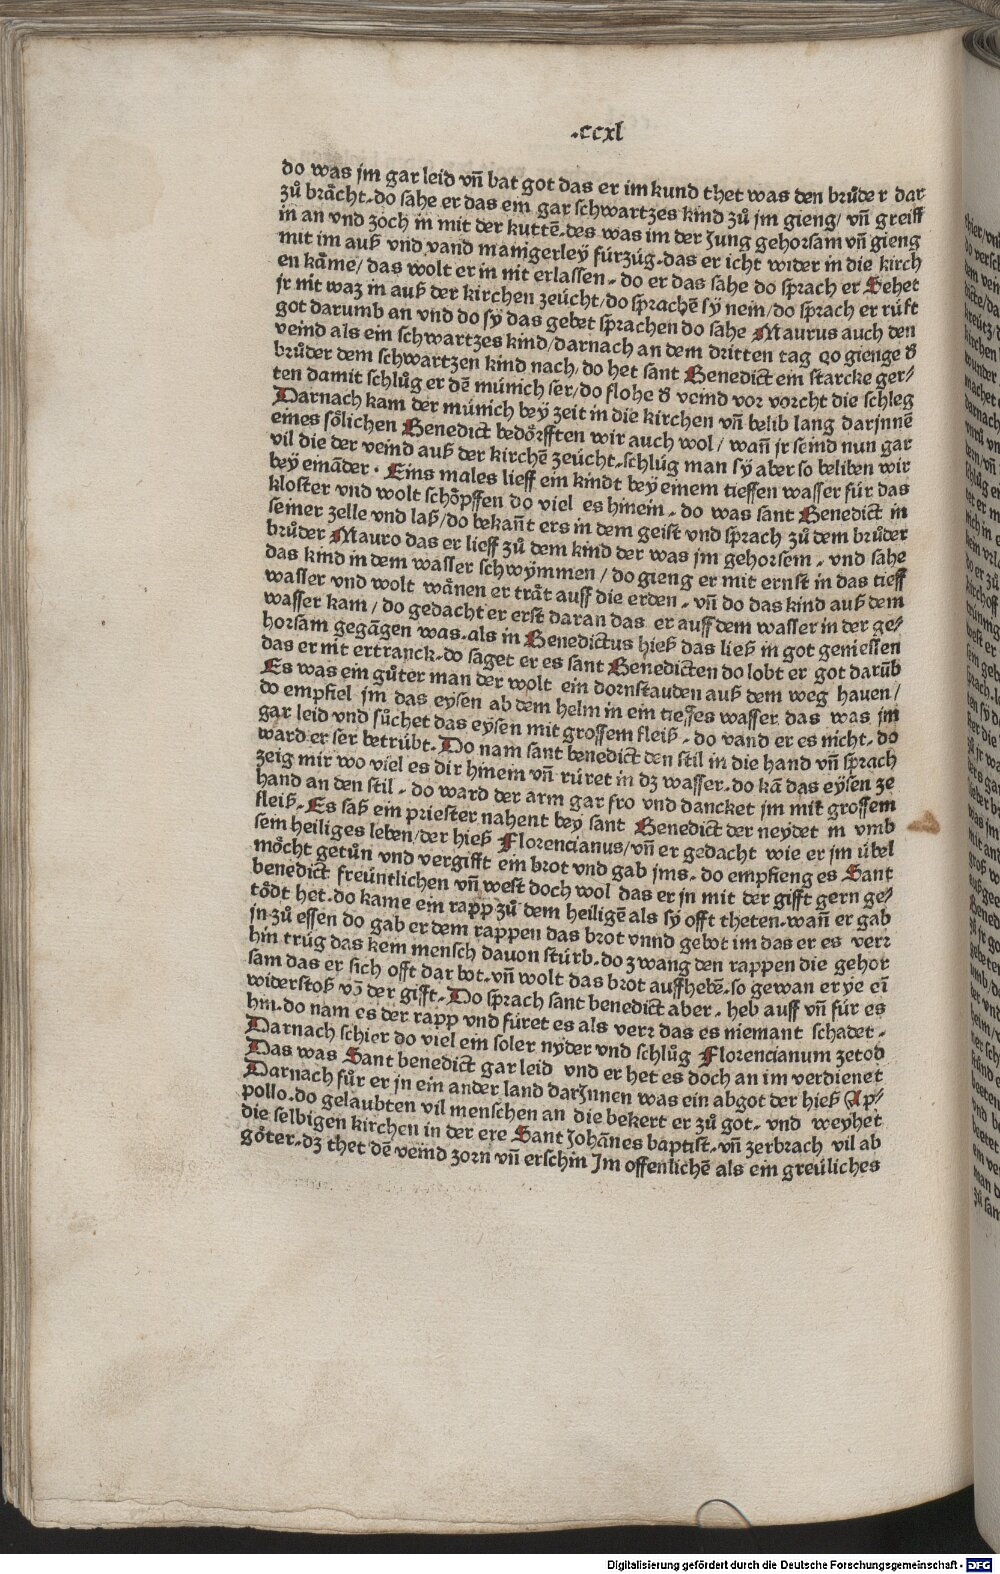 .ccxl
do was jm gar leid vn̄ bat got das er im kund thet was den brůder dar
zů bråcht. do sahe er das ein gar schwartzes kind zů jm gieng/ vn̄ greiff
in an vnd zoch in mit der kuttē. des was im der Jung gehorsam vn̄ gieng
mit im auß vnd vand manigerley fürzüg. das er icht wider in die kirch
en kåme/ das wolt er in nit erlassen. do er das sahe do sprach er Sehet
jr nit waz in auß der kirchen zeücht/ do sprachē sÿ nein/ do sprach er rüfft
got darumb an vnd do sÿ das gebet sprachen do sahe Maurus auch den
veind als ein schwartzes kind/ darnach an dem dritten tag do gienge d̕
brůder dem schwartzen kind nach/ do het sant Benedict ein starcke ger/
ten damit schlůg er dē münich ser/ do flohe d̕ veind vor vorcht die schleg
Darnach kam der münich bey zeit in die kirchen vn̄ belib lang darjnnē
eines sölichen Benedict bedörfften wir auch wol/ wan̄ jr seind nun gar
vil die der veind auß der kirchē zeücht. schlüg man sÿ aber so beliben wir
beÿ eināder. Eins males lieff ein kindt beÿ einem tieffen wasser für das
kloster vnd wolt schöpffen do viel es hinein. do was sant Benedict in
seiner zelle vnd laß/ do bekan̄t ers in dem geist vnd sprach zů dem brůder
brůder Mauro das er lieff zů dem kind der was jm gehorsem. vnd sahe
das kind in dem wasser schwÿmmen/ do gieng er mit ernst in das tieff
wasser vnd wolt wånen er tråt auff die erden. vn̄ do das kind auß dem
wasser kam/ do gedacht er erst daran das er auff dem wasser in der ge/
horsam gegāgen was. als in Benedictus hieß das ließ in got geniessen
das er nit ertranck. do saget er es sant Benedicten do lobt er got darūb
Es was ein gůter man der wolt ein dornstauden auß dem weg hauen/
do empfiel jm das eysen ab dem helm in ein tieffes wasser das was jm
gar leid vnd sůchet das eysen mit grossem fleiß. do vand er es nicht. do
ward er ser betrübt. Do nam sant benedict den stil in die hand vn̄ sprach
zeig mir wo viel es dir hinein vn̄ rüret in dz wasser. do kā das eysen ze
hand an den stil. do ward der arm gar fro vnd dancket jm mit grossem
fleiß. Es saß ein priester nahent bey sant Benedict der neydet in vmb
sein heiliges leben/ der hieß Florencianus/ vn̄ er gedacht wie er jm übel
möcht getůn vnd vergifft ein brot vnd gab jms. do empfieng es Sant
benedict freüntlichen vn̄ west doch wol das er jn mit der gifft gern ge/
tödt het. do kame ein rapp zů dem heiligē als sÿ offt theten. wan̄ er gab
jn zů essen do gab er dem rappen das brot vnnd gebot im das er es verr
hin trüg das kein mensch dauon stürb. do zwang den rappen die gehor
sam das er sich offt dar bot. vn̄ wolt das brot auffhebē. so gewan er ÿe eī
widerstoß vō der gifft. Do sprach sant benedict aber. heb auff vn̄ für es
hin. do nam es der rapp vnd füret es als verr das es niemant schadet.
Darnach schier do viel ein soler nyder vnd schlůg Florencianum zetod
Das was Sant benedict gar leid vnd er het es doch an im verdienet
Darnach fůr er jn ein ander land darJnnen was ein abgot der hieß Ap/
pollo. do gelaubten vil menschen an die bekert er zů got. vnd weyhet
die selbigen kirchen in der ere Sant Johānes baptist. vn̄ zerbrach vil ab
göter. dz thet dē veind zorn vn̄ erschin Im offenlichē als ein greüliches
Digitalisierung gefördert durch die Deutsche Forschungsgemeinschaft - DFG